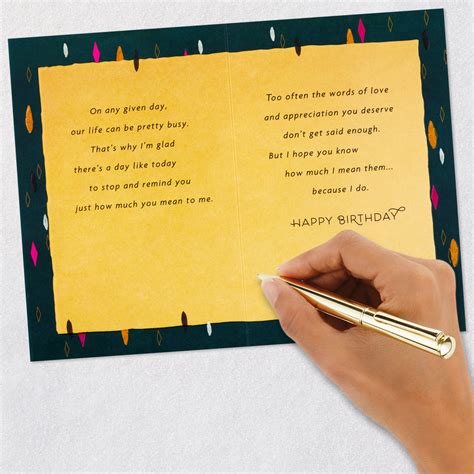 On any given day,
our life can be pretty busy.
That's why I'm glad
there's a day like today
to stop and remind you
just how much you mean to me.
Too often the words of love
and appreciation you deserve
don't get said enough.
But I hope you know
how much I mean them...
because I do.
HAPPY BIRTHDAY